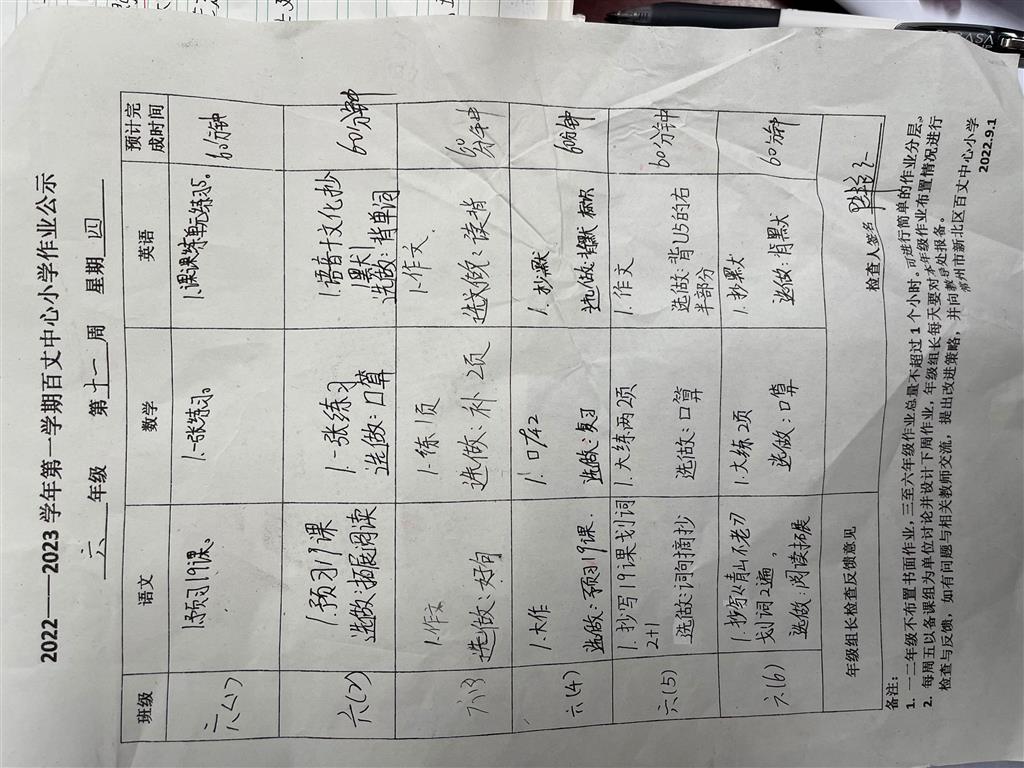 2022——2023 学年第一学期百丈中心小学作业公示
六 年级 第 十一 周 星期 四
班级 语文 数学 英语 预计完成时间
六(1) 1.预习19课。 1.一张练习 60分钟
六(2) 1.预习19课 1.一张练习 1.语音+文化抄默 60分钟
选做:拓展阅读 选做:口算 选做:背单词
六(3) 1.作文 1.一练1页 1.作文 60分钟
选做:好句 选做:补2项 读背
六(4) 1.大作 1.口P42 1.抄默 60分钟
选做:预习19课. 选做:复习 选做:背默
六(5) 1.抄写19课划词2+1 1.大练两项 1.作文 60分钟
选做:词句摘抄 选做:口算 选做:背U5的右半部分
六(6) 1.抄写《青山不老》划词2遍, 1.大练2项 1.抄默大 60分钟
选做:阅读拓展 选做:口算 选做:背默
年级组长检查反馈意见 检查人签名
备注:
1. 一二年级不布置书面作业,三至六年级作业总量不超过 1 个小时。可进行简单的作业分层。
2. 每周五以备课组为单位讨论并设计下周作业,年级组长每天要对本年级作业布置情况进行
检查与反馈,如有问题与相关教师交流,提出改进策略,并向教导处报备。
常州市新北区百丈中心小学
2022.9.1